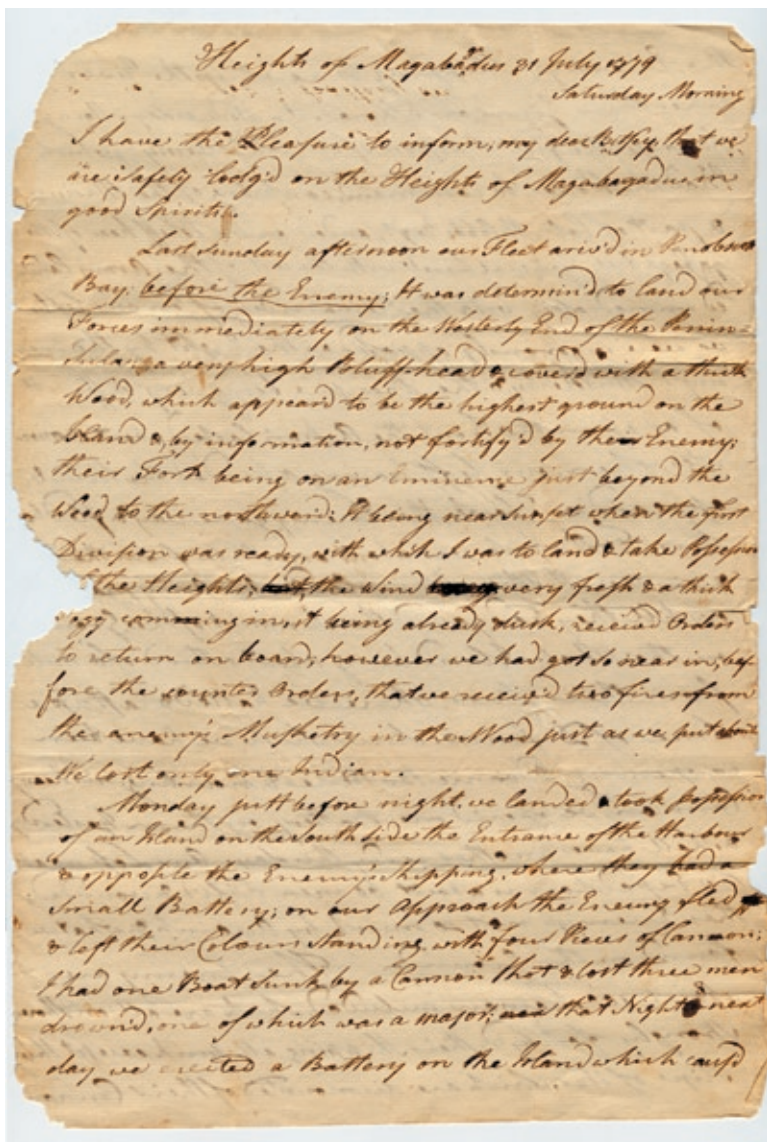 Heights of Magabagaduce 31 July 1779
Saturday Morning
I have the Pleasure to inform, my dear Betsey, that we
are safely lodg'd on the Heights of Magabagaduce in
good Spirits.
Last Sunday afternoon our Fleet ariv'd in Penobscot
Bay, before the Enemy; It was determin'd to land our
Forces immediately on the Westerly End of the Penin=
sula, a very high Bluff-head & cover'd with a thick
Wood, which appear'd to be the highest ground on the
Island & by information, not fortify'd by the Enemy;
their Fort being on an Eminence just beyond the
Wood to the northward: It being near Sunset when the first
Division was ready, with which I was to land & take Possession
of the Heights, the Wind very fresh & a thick
fogg coming in, it being already dusk, reciev'd Orders
to return on board; however we had got so near in, be=
fore the counter Orders, that we receiv'd two fires from
the enemy's Musketry in the Wood just as we put about
We lost only one Indian.
Monday just before night, we landed & took possession
of an Island on the South side the Entrance of the Harbour
& opposite the Enemy's Shipping, where they had a
Small Battery; on our Approach the Enemy fled
& left their Colours standing with four Pieces of Cannon;
I had one Boat Sunk by a Cannon Shot & lost three men
drown'd, one of which was a major; that Night & next
day we erected a Battery on the Island which caus'd